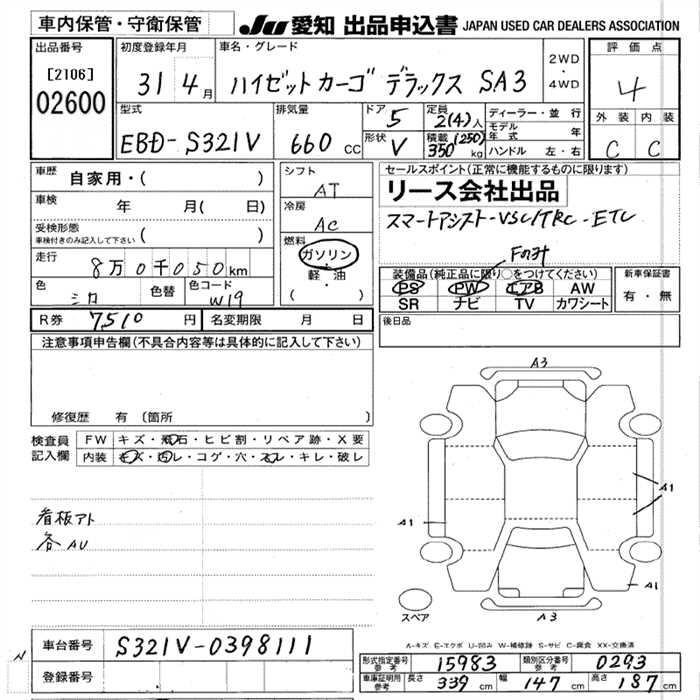 車内保管・守衛保管
JU 愛知 出品申込書 JAPAN USED CAR DEALERS ASSOCIATION
出品番号
[2106]
02600
初度登録年月
31 4月
車名・グレード
ハイゼットカーゴ デラックス SA3
2WD
・
4WD
評価点
4
外装 内装
C C
型式
EBD-S321V
排気量
660 CC
ドア
5
形状
V
定員
2(4)人
積載 (250)
350kg
ディーラー・並行
モデル年式 年
ハンドル 左・右
車歴
自家用・( )
車検
年 月( 日)
受検形態
車検付きのみ記入して下さい
( )
走行
8万0千050km
色
シロ
色替
色コード
W19
シフト
AT
冷房
AC
燃料
ガソリン
・
軽・油
( )
セールスポイント(正常に機能するものに限ります)
リース会社出品
スマートアシスト-VSC/TRC-ETC
Fのみ
装備品(純正品に限り○をつけてください)
PS PW エアB AW
SR ナビ TV カワシート
新車保証書
有・無
R券 7510 円
名変期限 月 日
後日品
注意事項申告欄(不具合内容等は具体的に記入して下さい)
修復歴 有〔箇所 〕
検査員
記入欄
FW キズ・飛石・ヒビ割・リペア跡・X要
内装 キズ・汚レ・コゲ・穴・スレ・キレ・破レ
看板アト
各AU
A3
A1
A1
A1
スペア
A3
A-キズ E-エクボ U-凹み W-補修跡 S-サビ C-腐食 XX-交換済
N
車台番号 S321V-0398111
登録番号
形式指定番号
参考
15983
類別区分番号
参考
0293
車庫証明用
参考
長さ 339cm 幅 147cm 高さ 187cm